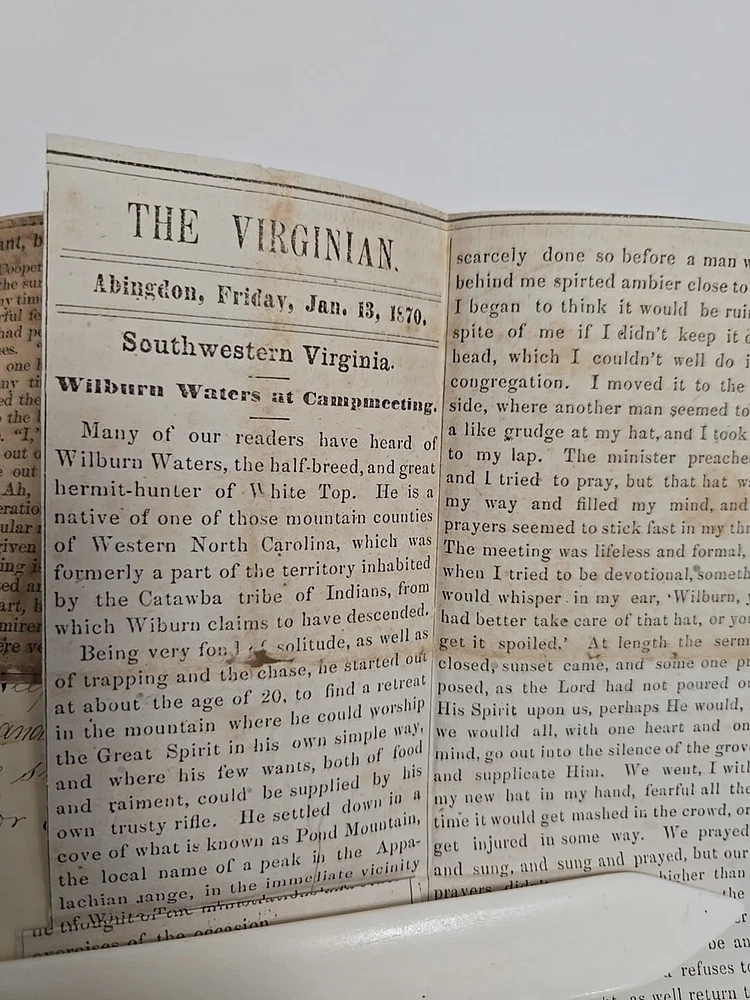 THE VIRGINIAN.
Abingdon, Friday, Jan. 13, 1870.
Southwestern Virginia.
Wilburn Waters at Campmeeting.
Many of our readers have heard of
Wilburn Waters, the half-breed, and great
hermit-hunter of White Top. He is a
native of one of those mountain counties
of Western North Carolina, which was
formerly a part of the territory inhabited
by the Catawba tribe of Indians, from
which Wiburn claims to have descended.
Being very solitude, as well as
of trapping and the chase, he started out
at about the age of 20, to find a retreat
in the mountain where he could worship
the Great Spirit in his own simple way,
and where his few wants, both of food
and raiment, could be supplied by his
own trusty rifle. He settled down in a
cove of what is known as Pond Mountain,
the local name of a peak in the Appa-
lachian range, in the immediate vicinity
exercises of the occasion
scarcely done so before a man
behind me spirted ambier close to
I began to think it would be
spite of me if I didn't keep it
head, which I couldn't well do
congregation. I moved it to the
side, where another man seemed to
a like grudge at my hat, and I took
to my lap. The minister
and I tried to pray, but that hat
my way and filled my mind, and
prayers seemed to stick fast in my
The meeting was lifeless and formal,
when I tried to be devotional,
would whisper in my ear, 'Wilburn,
had better take care of that hat, or
get it spoiled.' At length the
closed, sunset came, and some one
posed, as the Lord had not poured
His Spirit upon us, perhaps He would,
we woulld all, with one heart and
mind, go out into the silence of the
and supplicate Him. We went, I
my new hat in my hand, fearful all the
time it would get mashed in the crowd, or
get injured in some way. We prayed
and sung, and sung and prayed, but our
prayers higher than
the
be
refuses
as well return